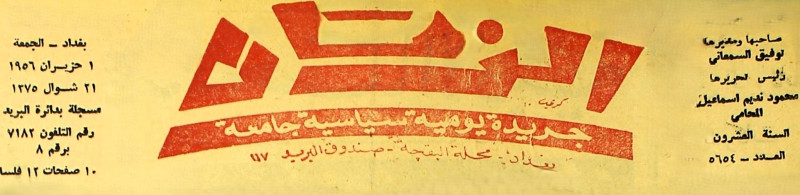 صاحبها ومديرها
توفيق السمعاني
رئيس تحريرها
محمود نديم اسماعيل
المحامي
السنة العشرون
العدد – ٥٦٥٤
الزمان
جريدة يومية سياسية جامعة
بغداد - محلة البقچة - صندوق البريد ١١٧
بغداد – الجمعة
١ حزيران ١٩٥٦
٢١ شوال ١٣٧٥
مسجلة بدائرة البريد
رقم التلفون ٧١٨٢
برقم ٨
١٠ صفحات ١٢ فلسا